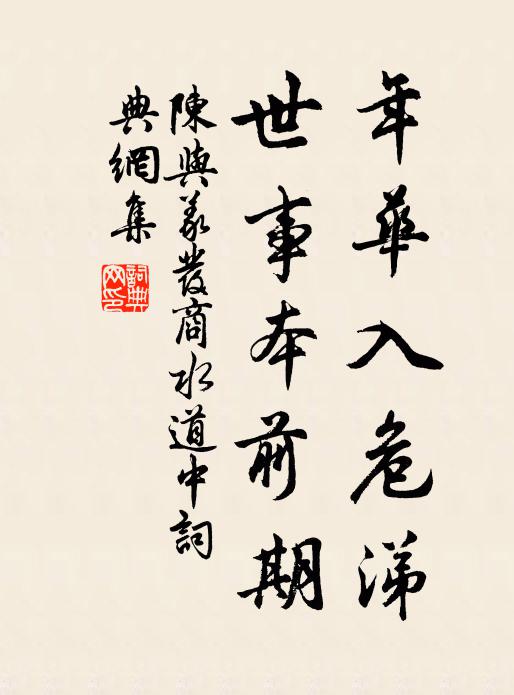 年華入危涕
世事本前期
陳與義發商水道中詞
典網集
詞典網印